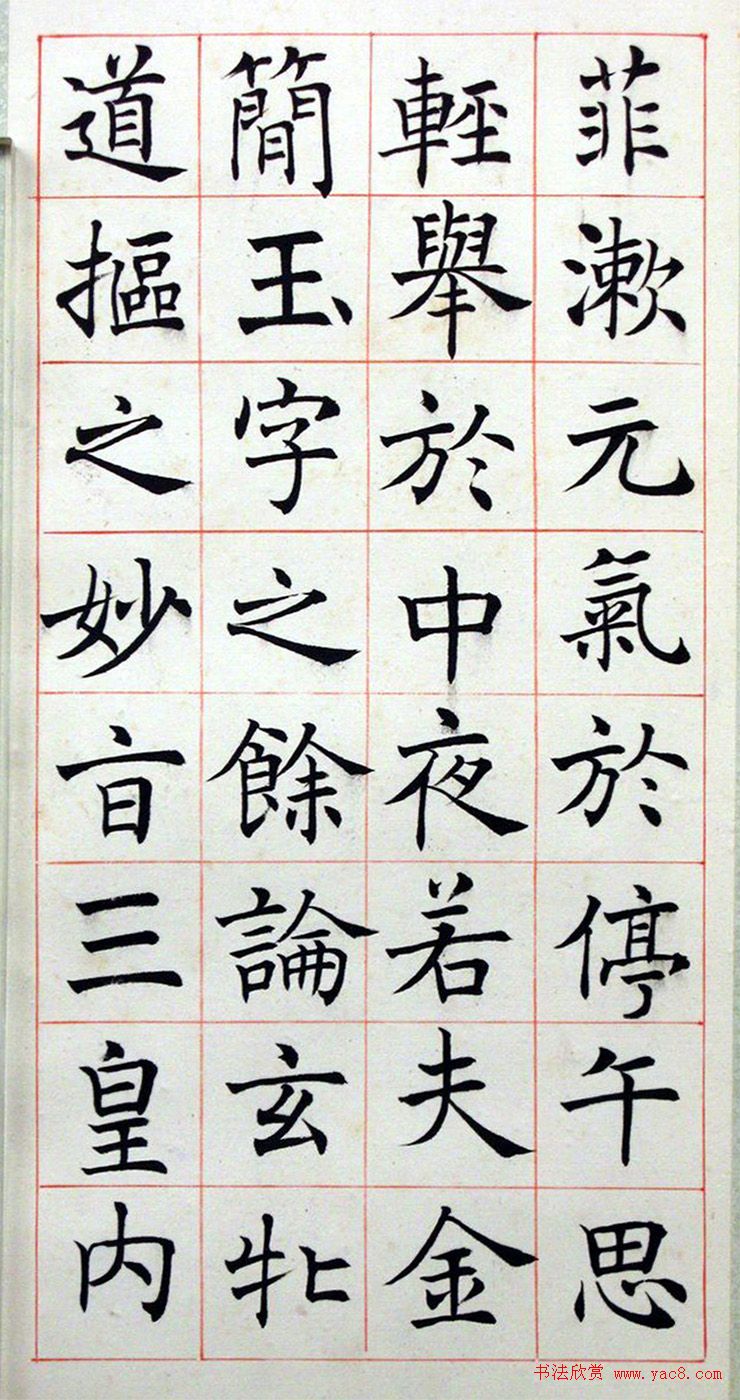 菲漱元氣於停午思
輕舉於中夜若夫金
簡玉字之餘論玄牝
道摳之妙㫖三皇内
书法欣赏 www.yac8.com